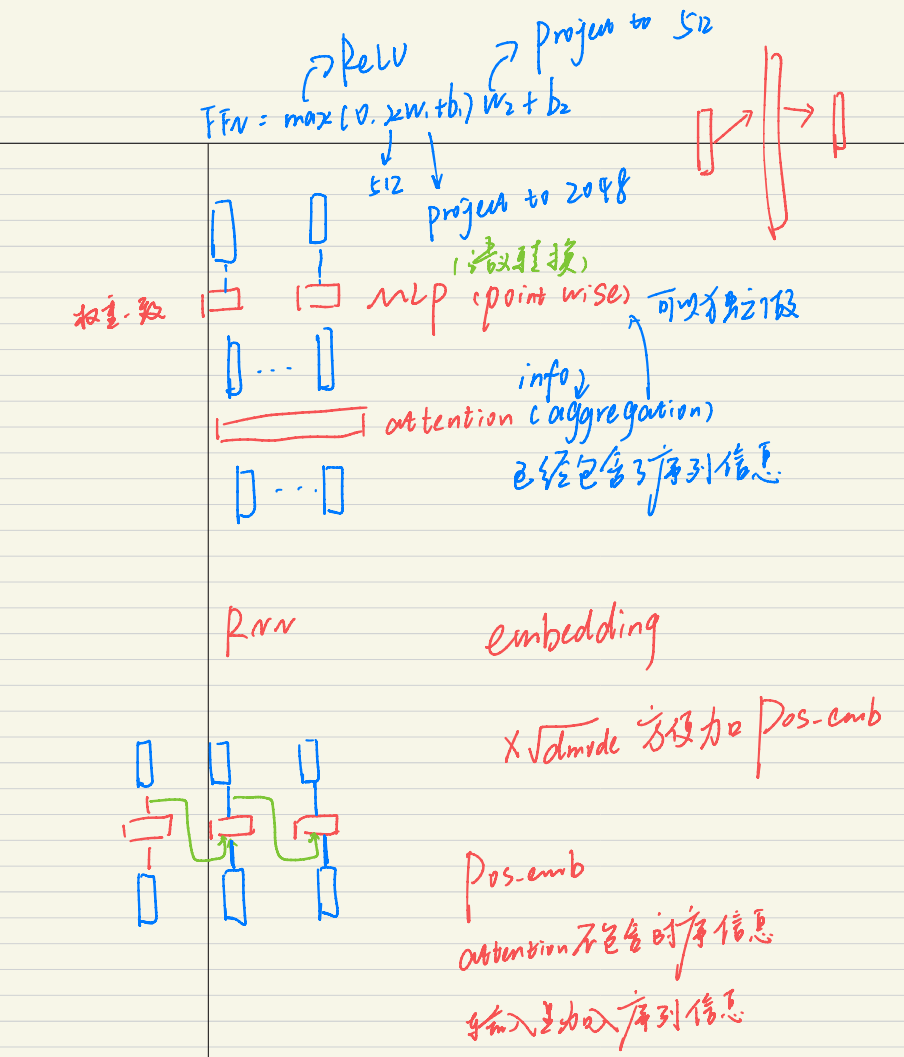 ReLU
project to 512
FFN = max(0, xw₁+b₁) w₂ + b₂
512
project to 2048
(语义转换)
权重一致
MLP (point wise)
可以独立做
info
attention (aggregation)
已经包含了序列信息
RNN
embedding
×√dmode 方便加 pos-emb
pos-emb
attention不包含时序信息
输入里加入序列信息